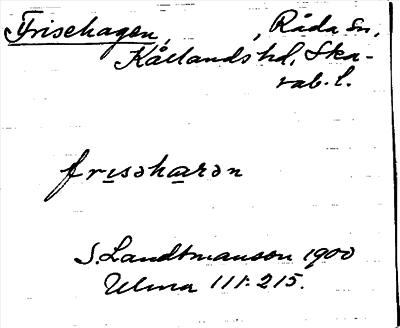 Frisehagen, , Råda sn,
Kållands hd, Ska-
rab. l.
frisəhagən
S. Landtmanson 1900
Ulma 111:215.